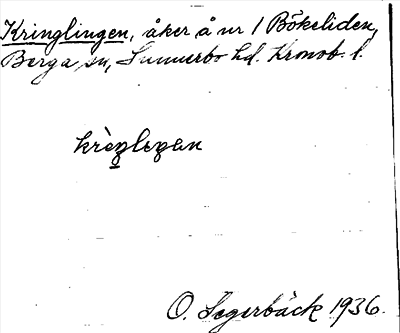 Kringlingen, åker å nr 1 Bökeliden,
Berga sn, Sunnerbo hd. Kronob. l.
krèŋleŋen
O. Segerbäck 1936.